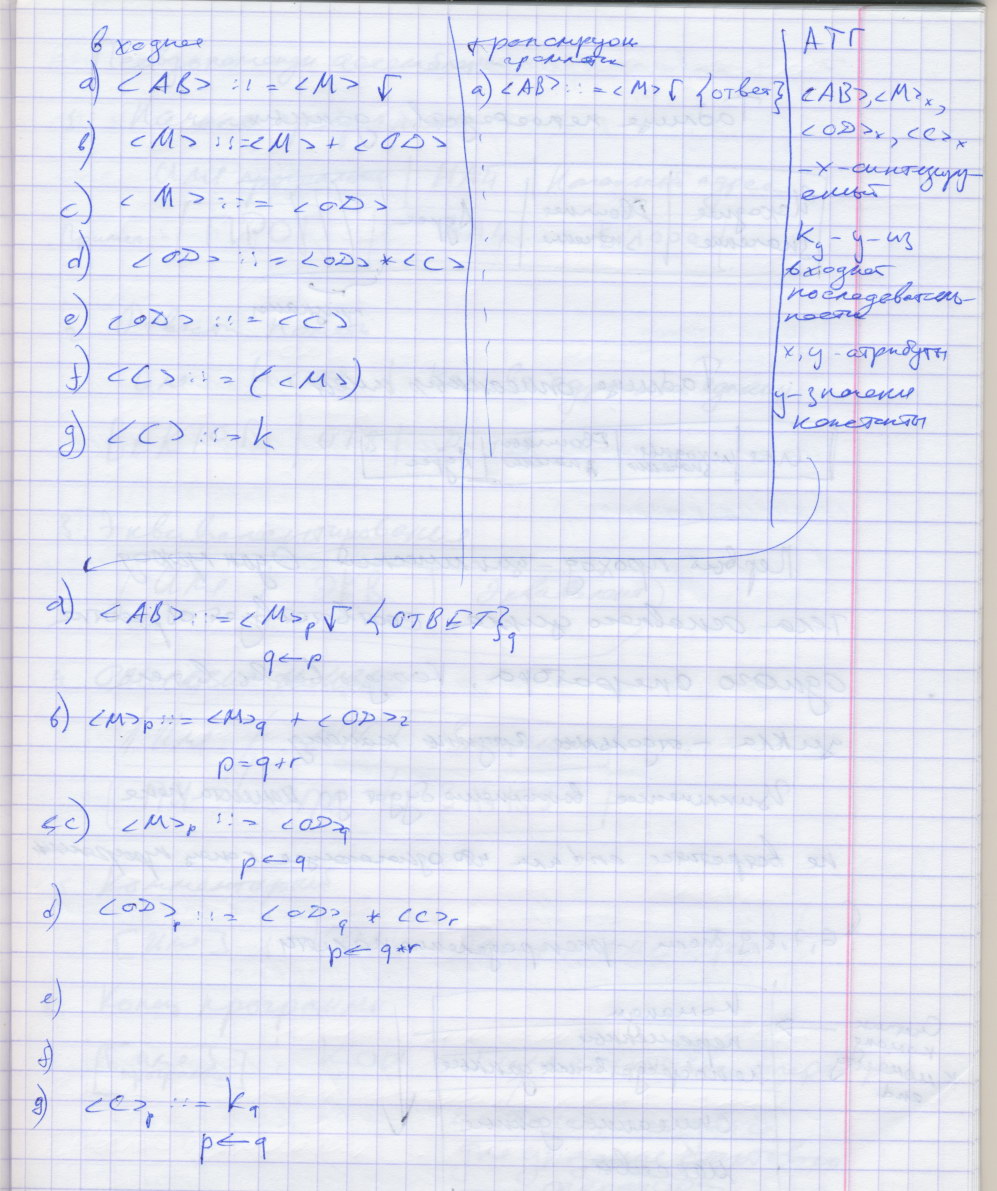 входнее
a) <AB> ::= <M> ↓
b) <M> ::= <M> + <OD>
c) <M> ::= <OD>
d) <OD> ::= <OD> * <C>
e) <OD> ::= <C>
f) <C> ::= (<M>)
g) <C> ::= k
a) <AB> ::= <M> ↓ {ответ}
АТГ
<AB>, <M>x,
<OD>x, <C>x
-x-синтезиру-
емый
Ky - y - из
входной
последователь-
ности
x, y - атрибуты
y - значение
константы
a) <AB> ::= <M>p ↓ {ОТВЕТ}q
q ← p
b) <M>p ::= <M>q + <OD>r
p = q + r
c) <M>p ::= <OD>q
p ← q
d) <OD>p ::= <OD>q * <C>r
p ← q*r
e)
f)
g) <C>p ::= Kq
p ← q